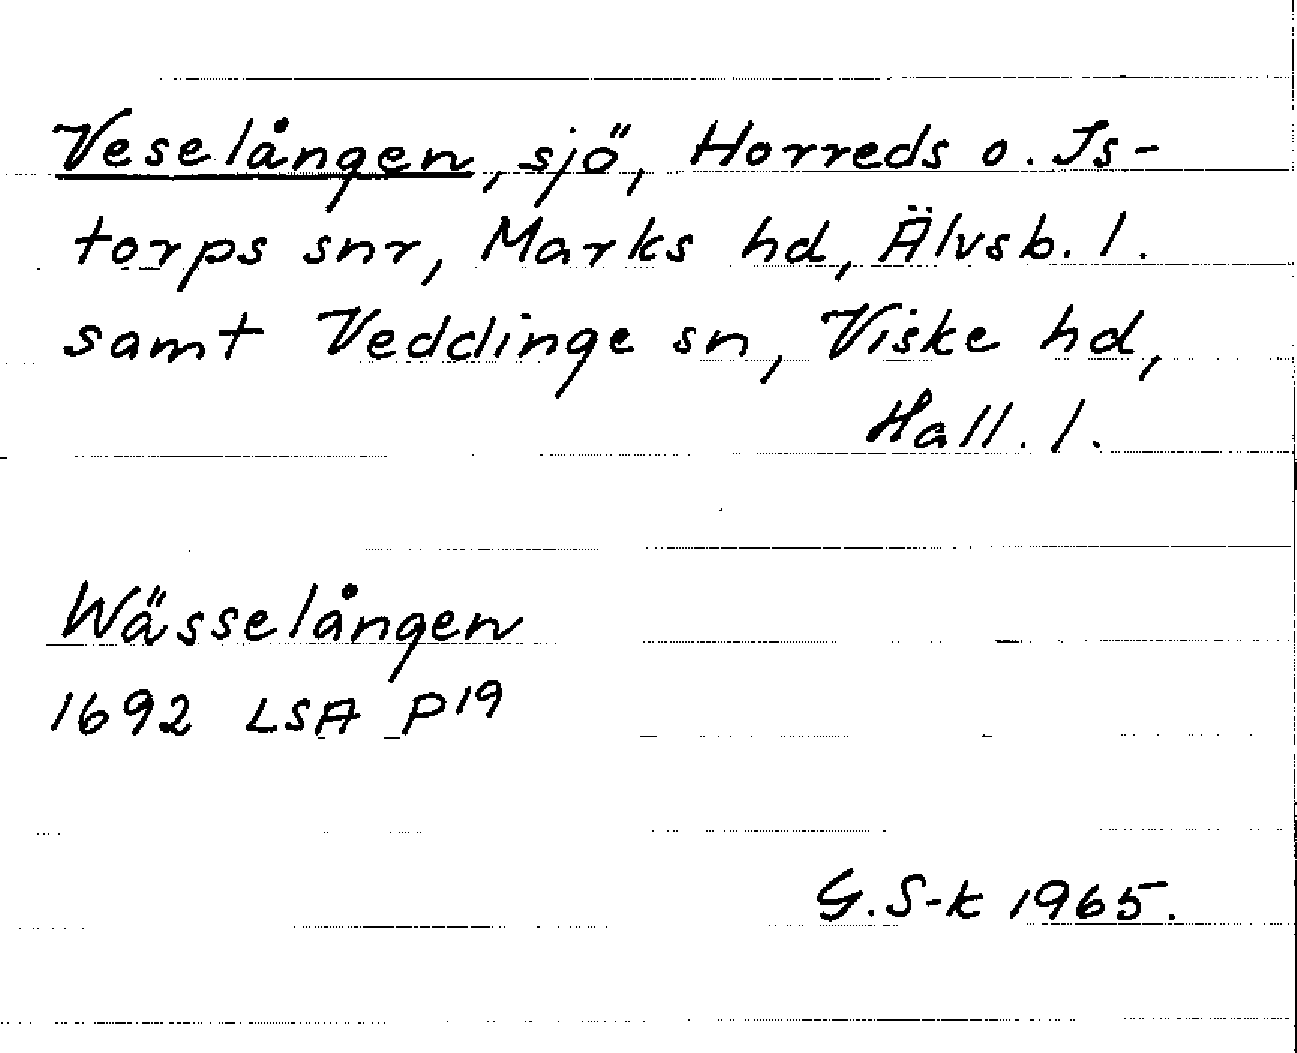 Veselången, sjö, Horreds o. Is-
torps snr, Marks hd, Älvsb. l.
samt Veddinge sn, Viske hd,
Hall. l.
Wässelången
1692 LSA P19
G. S-k 1965.